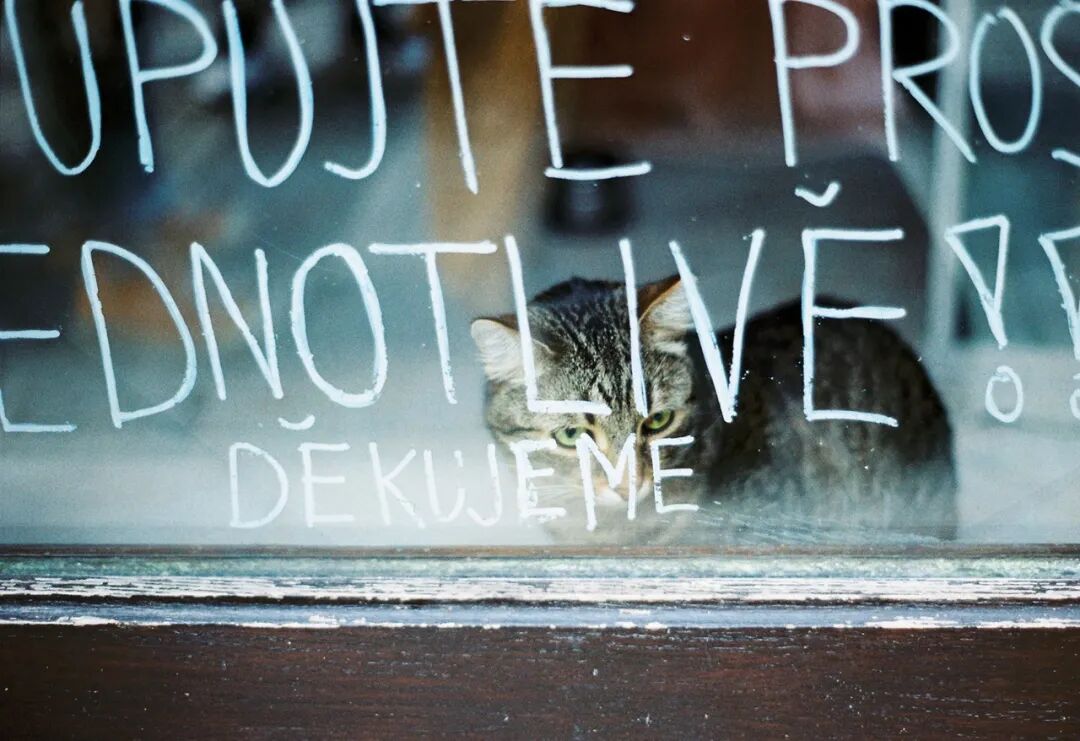 UPUJTE PROS
EDNOTLIVĚ!!
DĚKUJEME